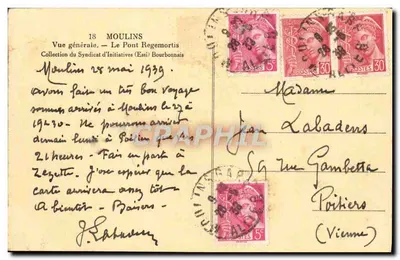 18 MOULINS
Vue générale. — Le Pont Regemortis
Collection du Syndicat d'Initiatives (Est) Bourbonnais
Moulins 28 mai 1939
avons fait un très bon voyage
sommes arrivés à Moulins le 27 à
19h30 - Ne pourrons arriver
demain lundi à Poitiers que
21 heures - Fais en part à
Zezette - J'ose espérer que la
carte arrivera assez tôt
A bientôt - Baisers -
J. Labadens
Madame
Jean Labadens
59 rue Gambetta
Poitiers
(Vienne)
MOULINS GARE
ALLIER
POSTES
30
30